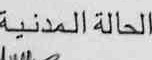 الحالة المدنية